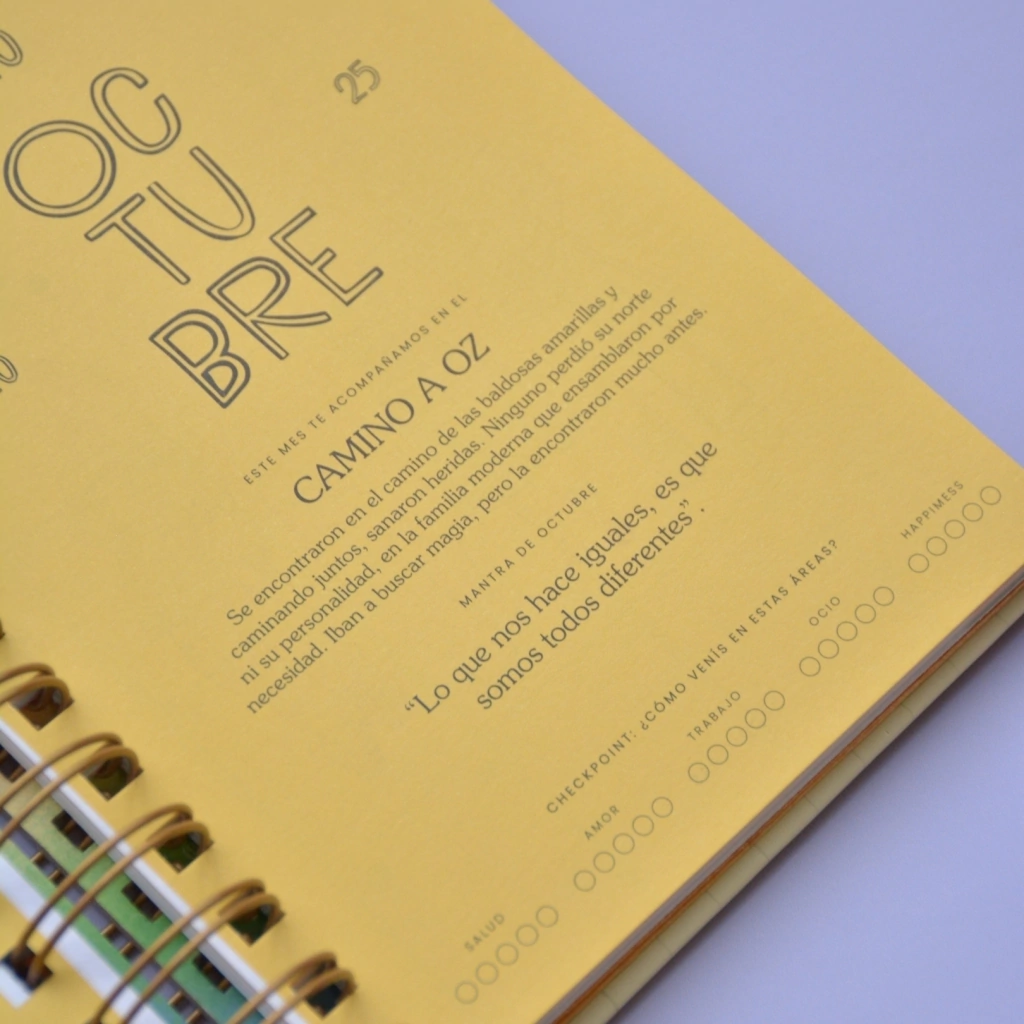 OC
TU
BRE
25
ESTE MES TE ACOMPAÑAMOS EN EL
CAMINO A OZ
Se encontraron en el camino de las baldosas amarillas y
caminando juntos, sanaron heridas. Ninguno perdió su norte
ni su personalidad, en la familia moderna que ensamblaron por
necesidad. Iban a buscar magia, pero la encontraron mucho antes.
MANTRA DE OCTUBRE
“Lo que nos hace iguales, es que
somos todos diferentes”.
CHECKPOINT: ¿CÓMO VENÍS EN ESTAS ÁREAS?
SALUD
AMOR
TRABAJO
OCIO
HAPPIMESS